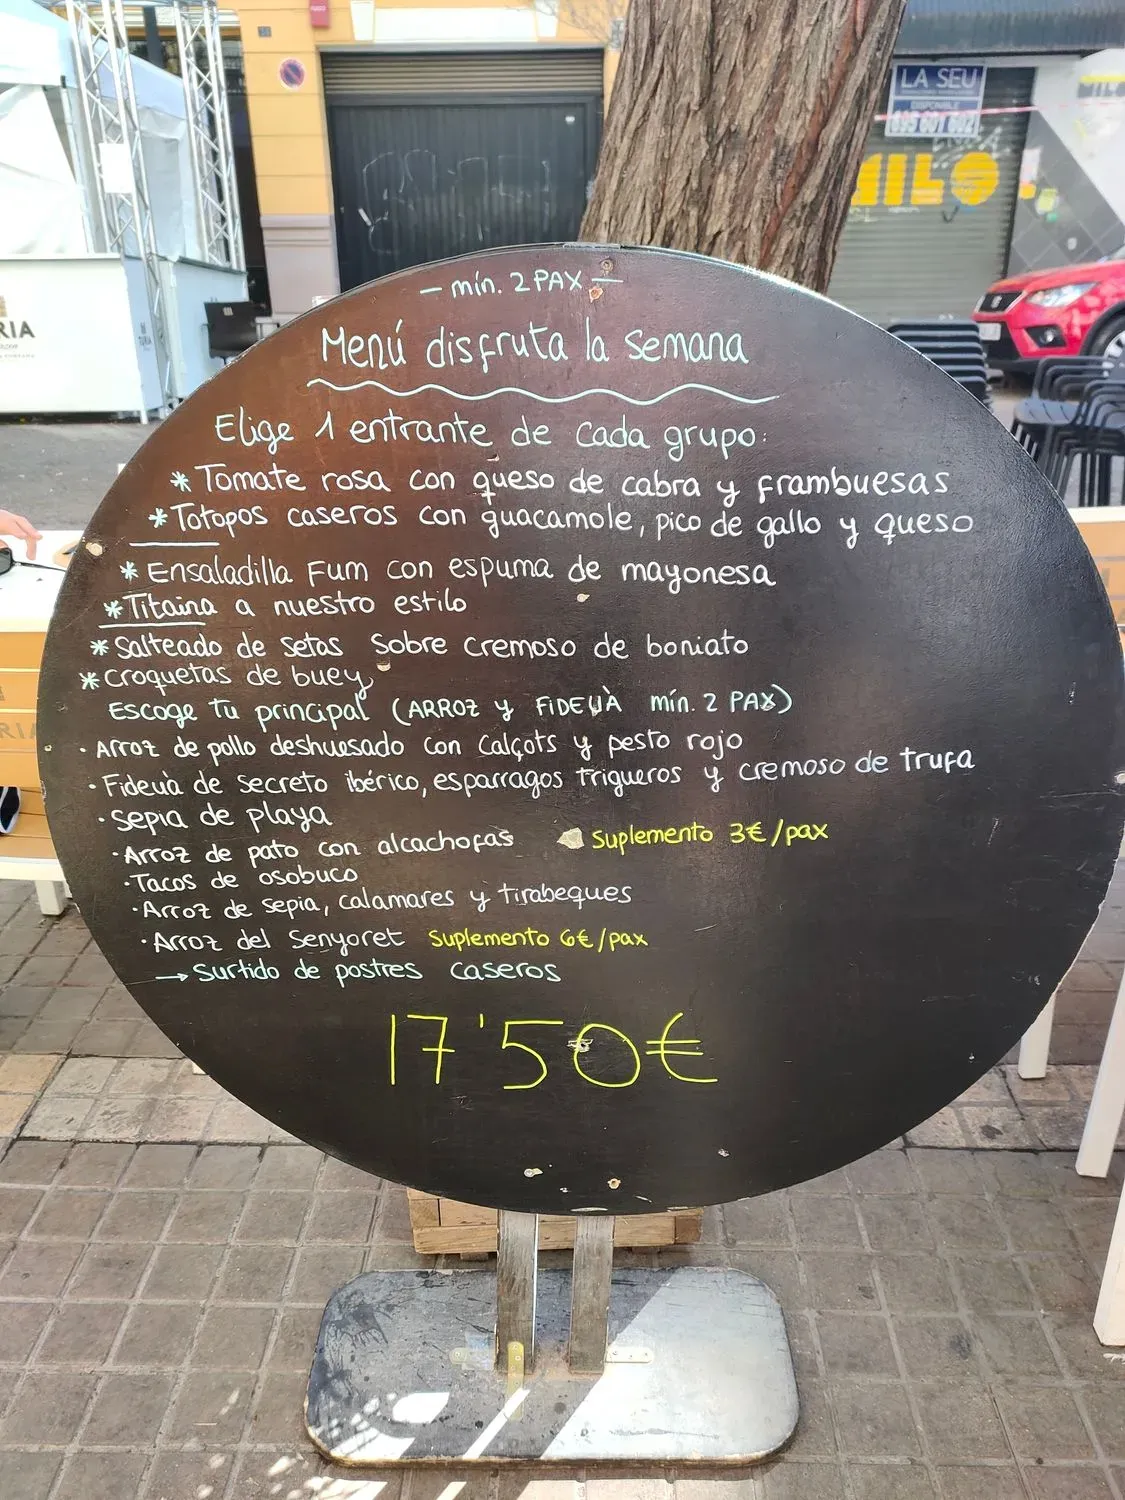 LA SEU
DISPONIBLE
695 601 602
RIA
– mín. 2 PAX –
Menú disfruta la semana
Elige 1 entrante de cada grupo:
* Tomate rosa con queso de cabra y frambuesas
* Totopos caseros con guacamole, pico de gallo y queso
* Ensaladilla Fum con espuma de mayonesa
* Titaina a nuestro estilo
* Salteado de setas sobre cremoso de boniato
* Croquetas de buey
Escoge tu principal (ARROZ y FIDEUÀ mín. 2 PAX)
· Arroz de pollo deshuesado con calçots y pesto rojo
· Fideuà de secreto ibérico, esparragos trigueros y cremoso de trufa
· Sepia de playa
· Arroz de pato con alcachofas Suplemento 3€/pax
· Tacos de osobuco
· Arroz de sepia, calamares y tirabeques
· Arroz del Senyoret Suplemento 6€/pax
→ Surtido de postres caseros
17'50€